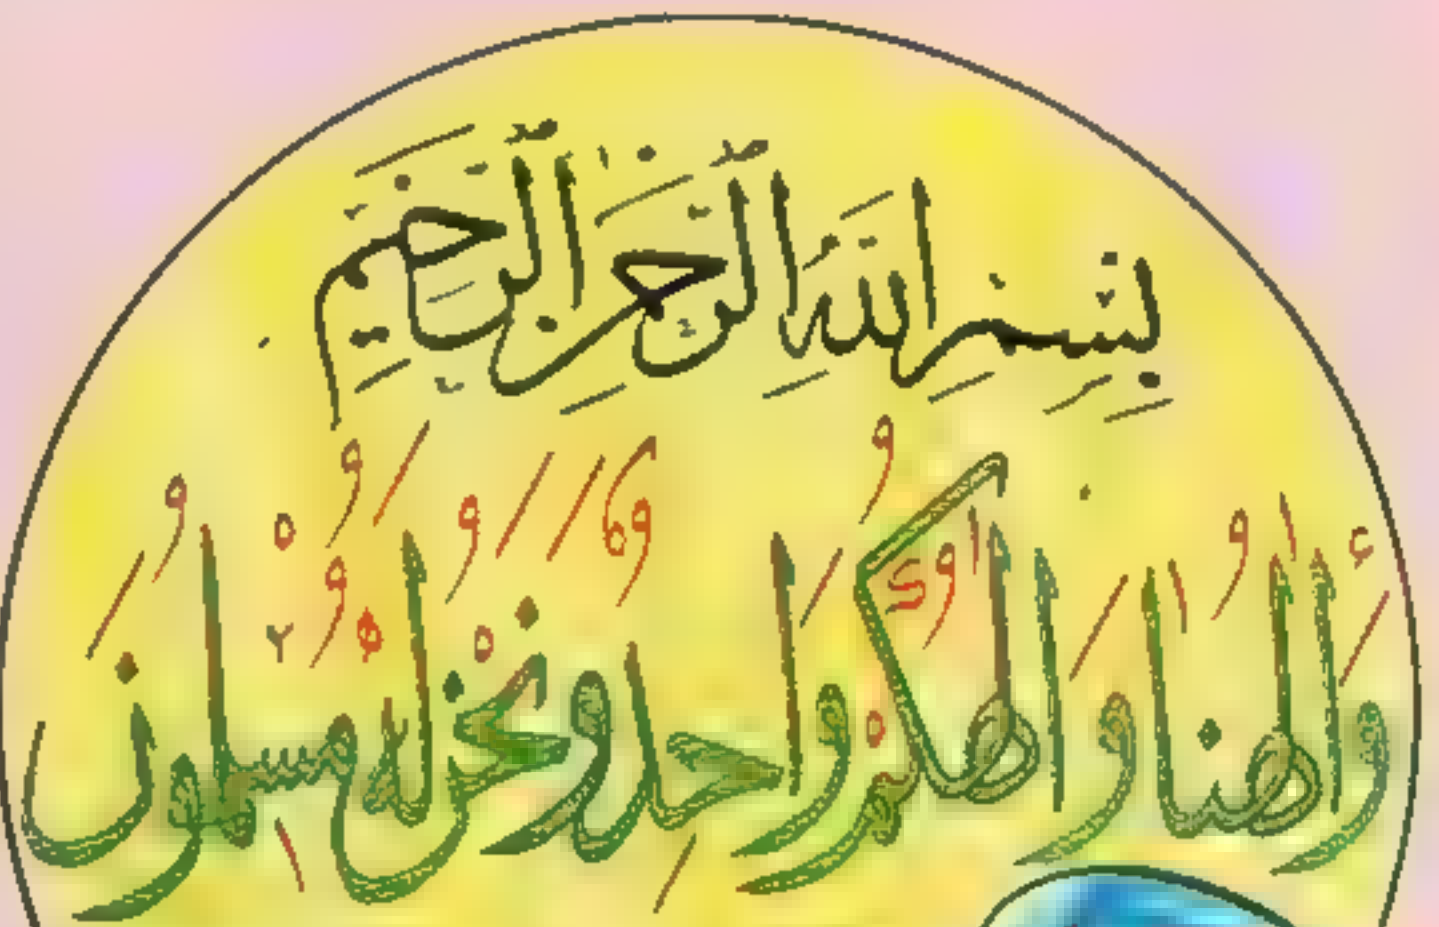 بِسْمِ اللَّهِ الرَّحْمَنِ الرَّحِيمِ
وَإِلَهُنَا وَإِلَهُكُمْ وَاحِدٌ وَنَحْنُ لَهُ مُسْلِمُونَ